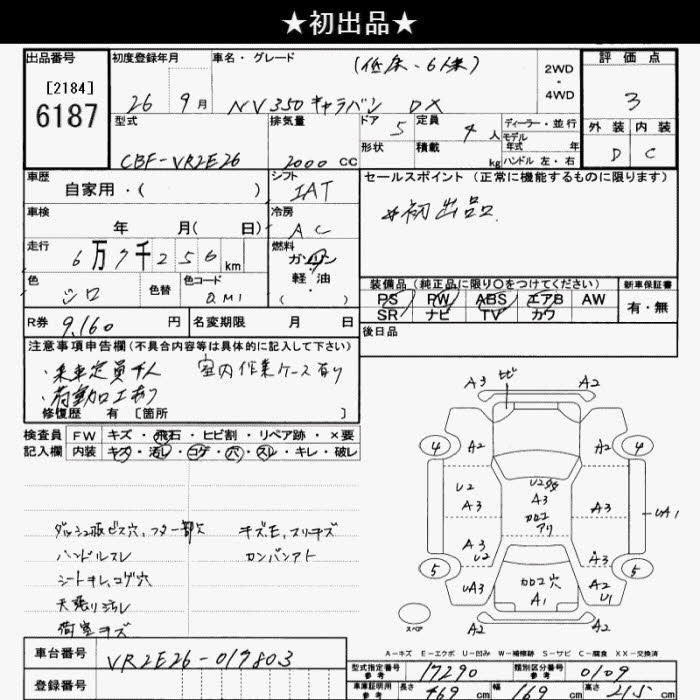 ★初出品★
出品番号 初度登録年月 車名・グレード (低床・6人乗) 2WD・4WD 評価点
[2184]
6187
26 9月 NV350キャラバン DX 3
型式 排気量 ドア 5 定員 4人 ディーラー・並行 外装 内装
モデル年式 年
CBF-VR2E26 2000 CC 形状 積載 kg ハンドル 左・右 D C
車歴 シフト セールスポイント(正常に機能するものに限ります)
自家用・( ) IAT
*初出品.
車検 冷房
年 月( 日) AC
走行 燃料
6万7千256km ガソリン
軽油
・( )
色 色替 色コード
シロ QM1
装備品(純正品に限り○をつけてください) 新車保証書
PS PW ABS エアB AW 有・無
SR ナビ TV カワ
R券 9,160円 名変期限 月 日 後日品
注意事項申告欄(不具合内容等は具体的に記入して下さい)
・乗車定員4人 室内作業ケース有り
・荷動加工あり
修復歴 有 [箇所 ]
検査員 FW キズ・飛石・ヒビ割・リペア跡・×要
記入欄 内装 キズ・汚レ・コゲ・穴・スレ・キレ・破レ
A3 ヒビ A2
4 A2 A2 4
U2 U2多数
A3 A3 A3 UA1
カロコアリ
A3 U2 A3
5 5
UA3 カロコ穴 A2
A1 U1
スペア A2 A2
ダッシュ廻ビス穴、フタ一部欠 キズE、スリキズ
ハンドルスレ カンバンアト
シートキレ、コゲ穴
天張り汚レ
荷室キズ
A-キズ E-エクボ U-凹み W-補修跡 S-サビ C-腐食 XX-交換済
車台番号 VR2E26-017803
登録番号
型式指定番号 参考 17290 類別区分番号 参考 0109
車庫証明用 参考 長さ 469cm 幅 169cm 高さ 215cm